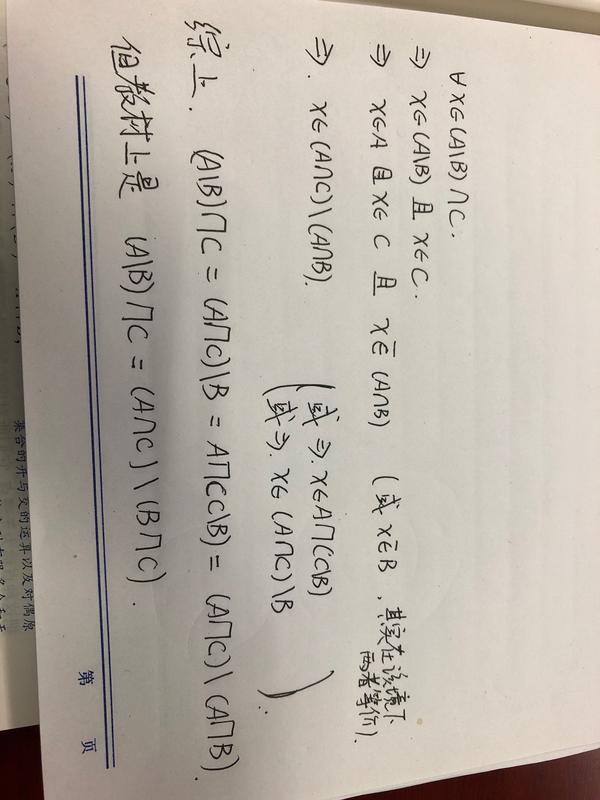 ∀ x∈(A\B)∩C.
⇒ x∈(A\B) 且 x∈C.
⇒ x∈A 且 x∈C 且 x∈̄(A∩B) (或 x∈̄B，其实在该境下两者等价).
⇒. x∈(A∩C)\(A∩B).
(或 ⇒. x∈A∩(C\B)
或 ⇒. x∈(A∩C)\B )
综上. (A\B)∩C = (A∩C)\B = A∩(C\B) = (A∩C)\(A∩B).
但教材上是 (A\B)∩C = (A∩C)\(B∩C).
第 页
集合的并与交的运算以及对偶原